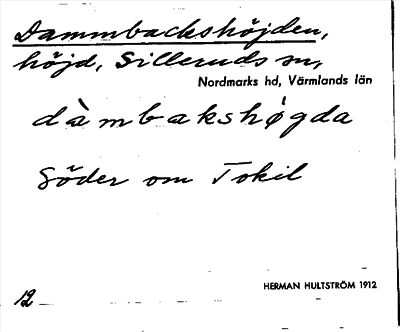 Dammbackshöjden,
höjd, Silleruds sn,
Nordmarks hd, Värmlands län
dàmbakshøgda
Söder om Tokil
HERMAN HULTSTRÖM 1912
12